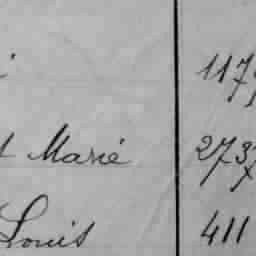 117
t Marié 273
Louis 411